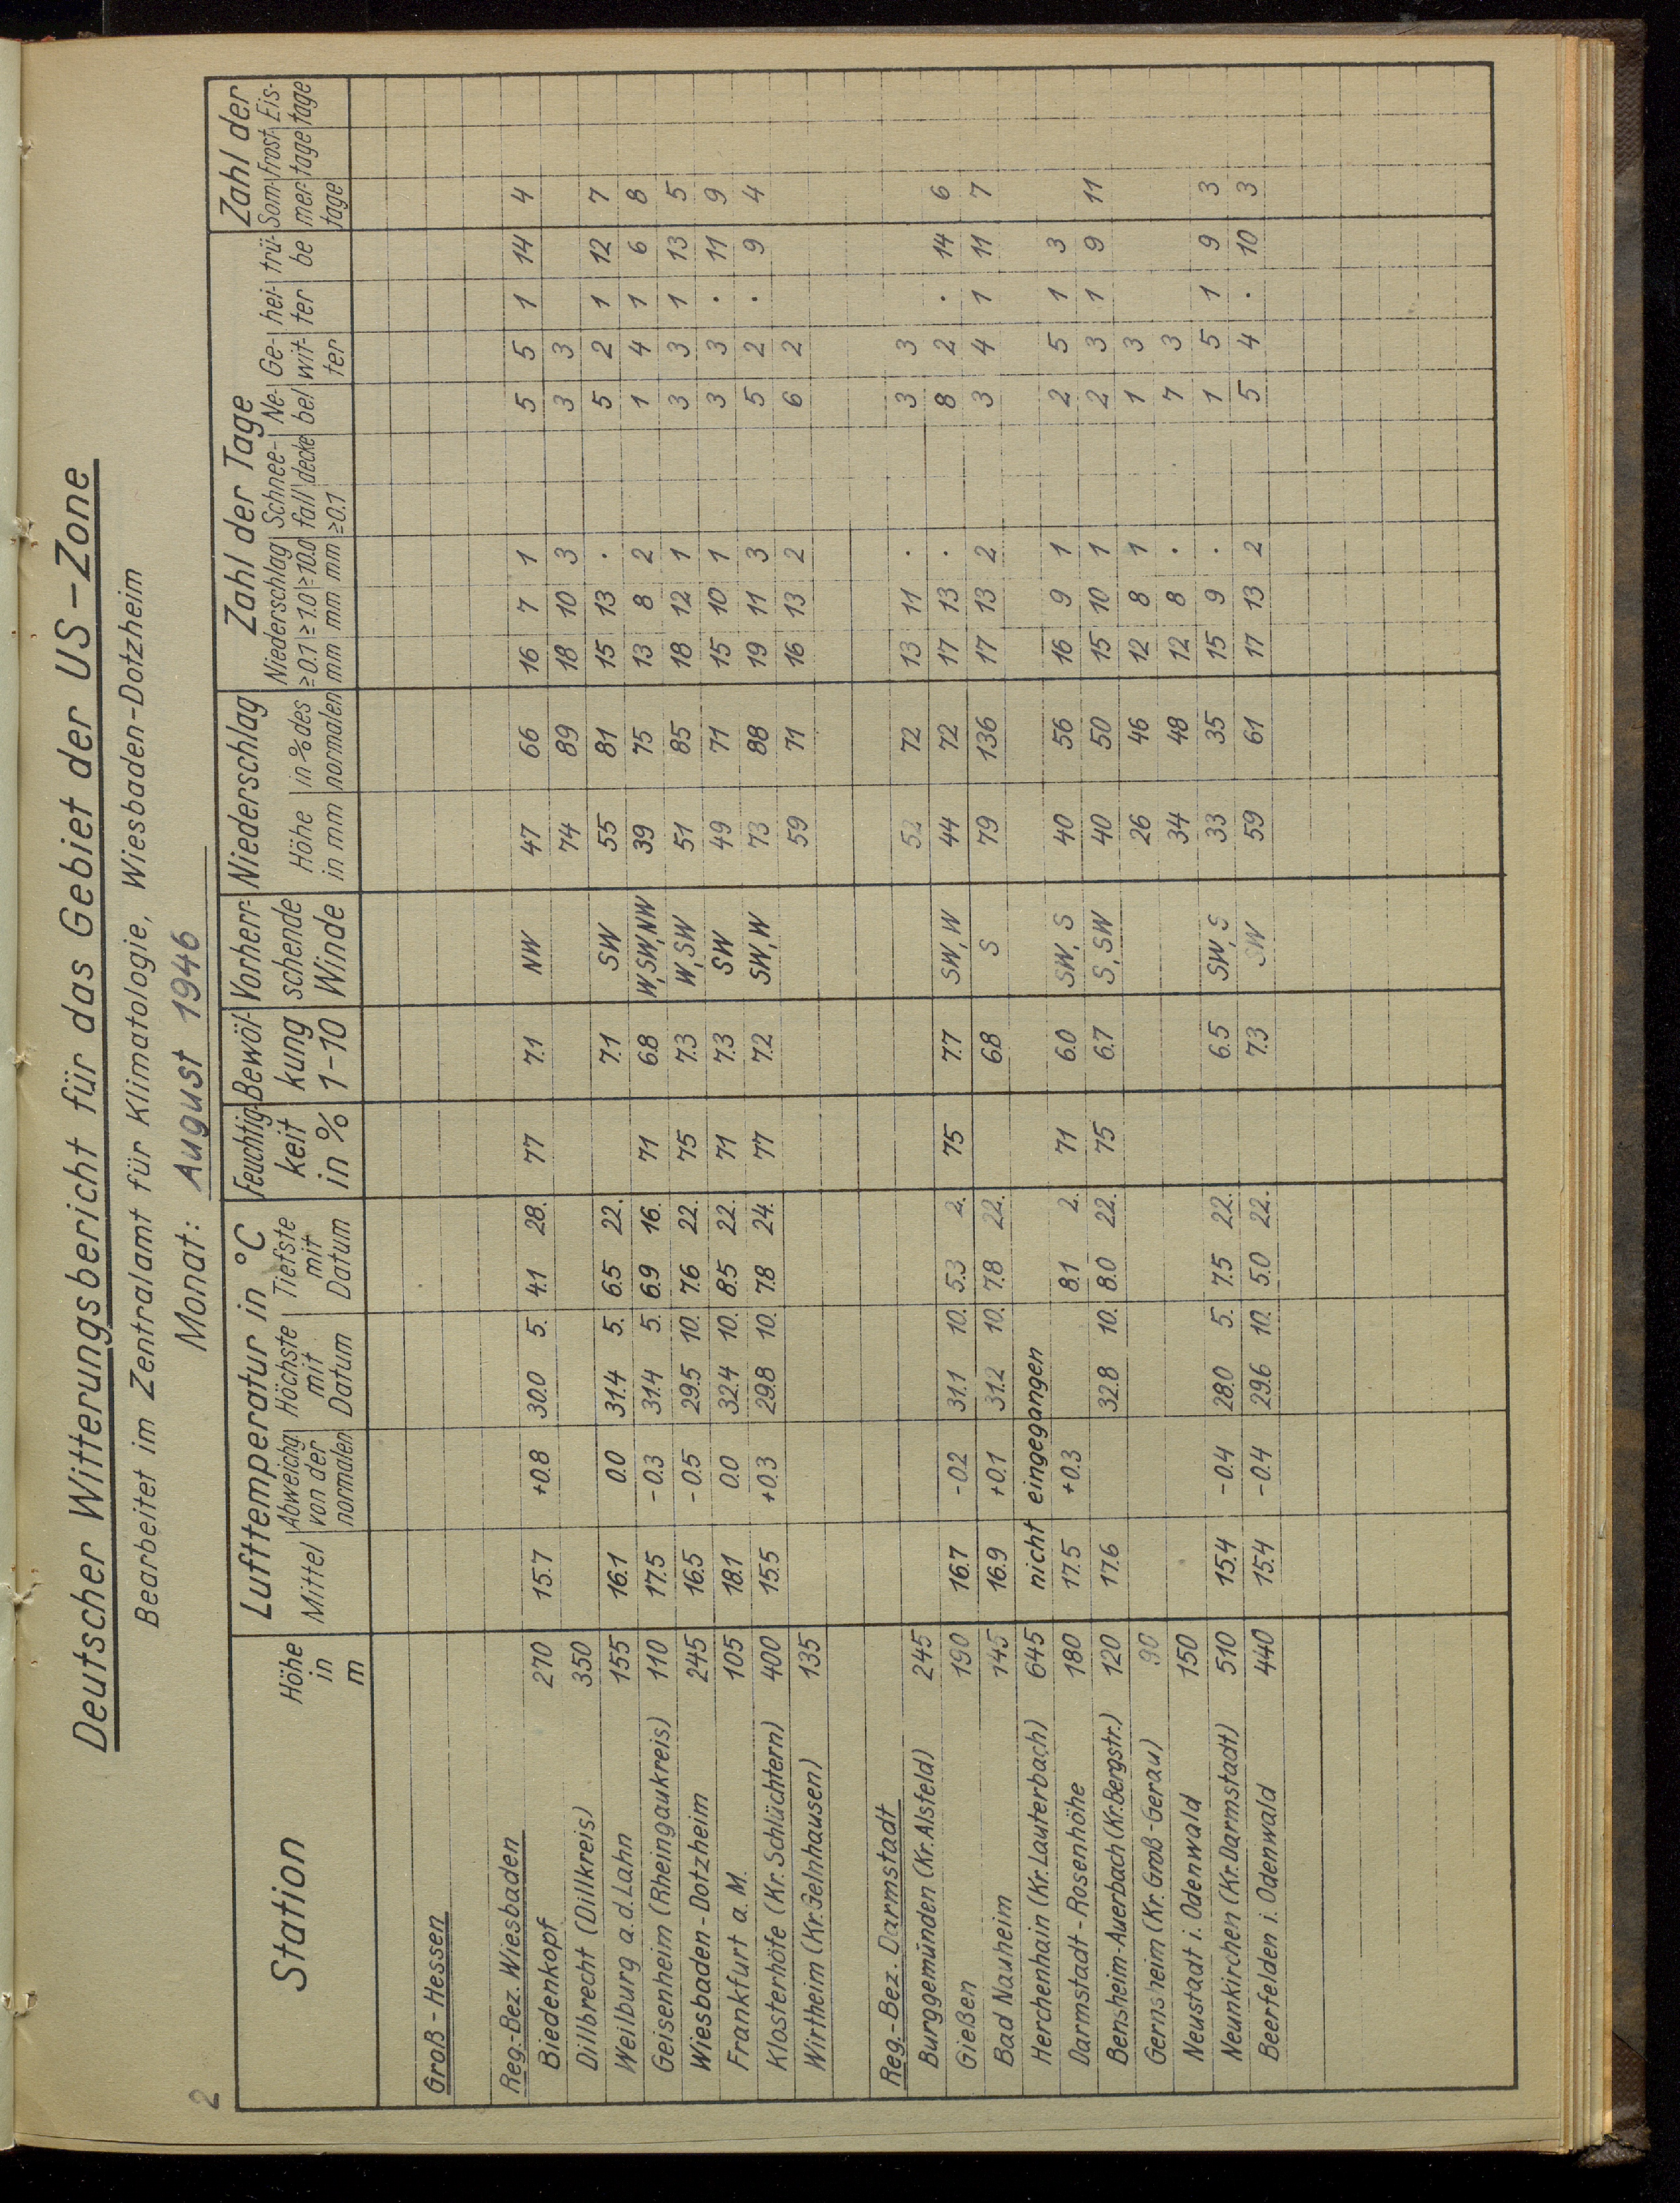 2
Deutscher Witterungsbericht für das Gebiet der US-Zone
Bearbeitet im Zentralamt für Klimatologie, Wiesbaden-Dotzheim
Monat: August 1946
Station Höhe in m Lufttemperatur in °C Feuchtig-keit in % Bewöl-kung 1-10 Vorherr-schende Winde Niederschlag Zahl der Tage Zahl der
Mittel Abweichg. von der normalen Höchste mit Datum Tiefste mit Datum Höhe in mm in % des normalen Niederschlag ≥0.1 mm ≥1.0 mm ≥10.0 mm Schnee-fall decke ≥0.1 Ne-bel Ge-wit-ter hei-ter trü-be Som-mer-tage Frost-tage Eis-tage
Groß-Hessen
Reg.-Bez. Wiesbaden
Biedenkopf 270 15.7 +0.8 30.0 5. 4.1 28. 77 7.1 NW 47 66 16 7 1 5 5 1 14 4
Dillbrecht (Dillkreis) 350 74 89 18 10 3 3 3
Weilburg a.d. Lahn 155 16.1 0.0 31.4 5. 6.5 22. 7.1 SW 55 81 15 13 . 5 2 1 12 7
Geisenheim (Rheingaukreis) 110 17.5 -0.3 31.4 5. 6.9 16. 71 6.8 W,SW,NW 39 75 13 8 2 1 4 1 6 8
Wiesbaden-Dotzheim 245 16.5 -0.5 29.5 10. 7.6 22. 75 7.3 W,SW 51 85 18 12 1 3 3 1 13 5
Frankfurt a. M. 105 18.1 0.0 32.4 10. 8.5 22. 71 7.3 SW 49 71 15 10 1 3 3 . 11 9
Klosterhöfe (Kr. Schlüchtern) 400 15.5 +0.3 29.8 10. 7.8 24. 77 7.2 SW,W 73 88 19 11 3 5 2 . 9 4
Wirtheim (Kr. Gelnhausen) 135 59 71 16 13 2 6 2
Reg.-Bez. Darmstadt
Burggemünden (Kr. Alsfeld) 245 52 72 13 11 . 3 3
Gießen 190 16.7 -0.2 31.1 10. 5.3 2. 75 7.7 SW,W 44 72 17 13 . 8 2 . 14 6
Bad Nauheim 145 16.9 +0.1 31.2 10. 7.8 22. 6.8 S 79 136 17 13 2 3 4 1 11 7
Herchenhain (Kr. Lauterbach) 645 nicht eingegangen
Darmstadt-Rosenhöhe 180 17.5 +0.3 8.1 2. 71 6.0 SW, S 40 56 16 9 1 2 5 1 3
Bensheim-Auerbach (Kr. Bergstr.) 120 17.6 32.8 10. 8.0 22. 75 6.7 S, SW 40 50 15 10 1 2 3 1 9 11
Gernsheim (Kr. Groß-Gerau) 90 26 46 12 8 1 1 3
Neustadt i. Odenwald 150 34 48 12 8 . 7 3
Neunkirchen (Kr. Darmstadt) 510 15.4 -0.4 28.0 5. 7.5 22. 6.5 SW, S 33 35 15 9 . 1 5 1 9 3
Beerfelden i. Odenwald 440 15.4 -0.4 29.6 10. 5.0 22. 7.3 SW 59 61 17 13 2 5 4 . 10 3